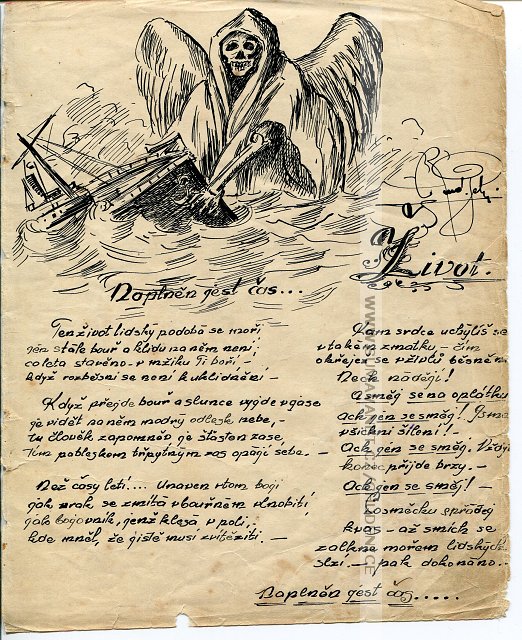 Život.
Naplněn gest čas...
Ten život lidský podobá se moři
gen stále bouř a klidu na něm není
co leta stavěno - v mžiku Ti boří -
když rozběsní se není k uklidnění -
Když přejde bouř a slunce vyjde v gase
je vidět na něm modrý odlesk nebe, -
tu člověk zapomněv je šťasten zase,
Tím pobleskem třpytným zas opájí sebe. -
Než časy letí.... Unaven v tom boji
jak vrak se zmítá v bouřném vlnobití
jak bojovník, jenž klesá v poli, -
kde mněl, že jistě musí zvítěziti. -
Kam srdce uchýlíš se
v takém zmatku - čím
okřeješ se v životů běsnění
Nech nadějí!
A směj se na oplátku
Ach jen se směj!
všichni šílení! -
- Ach jen se směj. Vždyť
konec přijde brzy. -
Ach jen se směj! -
úsměšku spřádej
kvas - až smích se
zalkne mořem lidských
slzí - pak dokonáno..
Naplněn gest čas.....